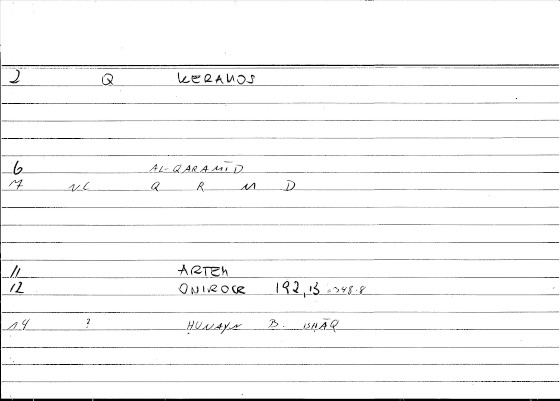 2 Q KERAMOS
6 AL-QARAMĪD
7 NC Q R M D
11 ARTEM
12 ONIROCR 192,13 = 348.8
14 ? ḤUNAYN B. ISḤĀQ